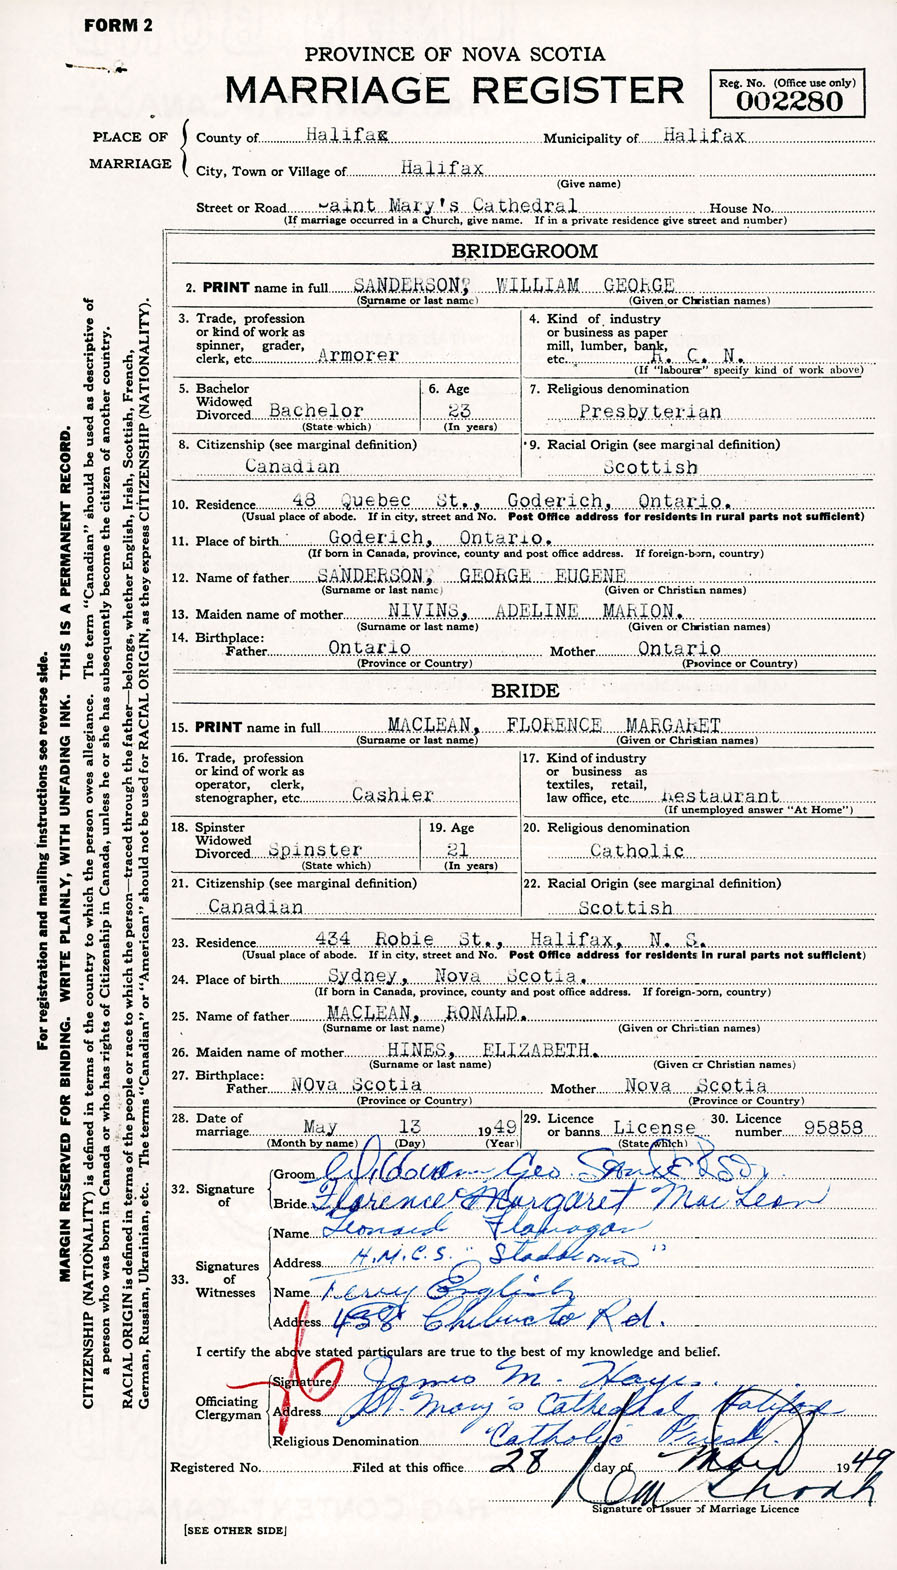 FORM 2
PROVINCE OF NOVA SCOTIA
MARRIAGE REGISTER
Reg. No. (Office use only)
002280
PLACE OF MARRIAGE
County of Halifax Municipality of Halifax
City, Town or Village of Halifax
(Give name)
Street or Road Saint Mary's Cathedral House No.
(If marriage occurred in a Church, give name. If in a private residence give street and number)
BRIDEGROOM
2. PRINT name in full SANDERSON, WILLIAM GEORGE
(Surname or last name) (Given or Christian names)
3. Trade, profession
or kind of work as
spinner, grader,
clerk, etc. Armorer
4. Kind of industry
or business as paper
mill, lumber, bank,
etc. R. C. N.
(If "labourer" specify kind of work above)
5. Bachelor
Widowed
Divorced Bachelor
(State which)
6. Age
23
(In years)
7. Religious denomination
Presbyterian
8. Citizenship (see marginal definition)
Canadian
9. Racial Origin (see marginal definition)
Scottish
10. Residence 48 Quebec St., Goderich, Ontario.
(Usual place of abode. If in city, street and No. Post Office address for residents in rural parts not sufficient)
11. Place of birth Goderich, Ontario.
(If born in Canada, province, county and post office address. If foreign-born, country)
12. Name of father SANDERSON, GEORGE EUGENE
(Surname or last name) (Given or Christian names)
13. Maiden name of mother NIVINS, ADELINE MARION.
(Surname or last name) (Given or Christian names)
14. Birthplace:
Father Ontario Mother Ontario
(Province or Country) (Province or Country)
BRIDE
15. PRINT name in full MACLEAN, FLORENCE MARGARET
(Surname or last name) (Given or Christian names)
16. Trade, profession
or kind of work as
operator, clerk,
stenographer, etc. Cashier
17. Kind of industry
or business as
textiles, retail,
law office, etc. Restaurant
(If unemployed answer "At Home")
18. Spinster
Widowed
Divorced Spinster
(State which)
19. Age
21
(In years)
20. Religious denomination
Catholic
21. Citizenship (see marginal definition)
Canadian
22. Racial Origin (see marginal definition)
Scottish
23. Residence 434 Robie St., Halifax, N. S.
(Usual place of abode. If in city, street and No. Post Office address for residents in rural parts not sufficient)
24. Place of birth Sydney, Nova Scotia.
(If born in Canada, province, county and post office address. If foreign-born, country)
25. Name of father MACLEAN, RONALD.
(Surname or last name) (Given or Christian names)
26. Maiden name of mother HINES, ELIZABETH.
(Surname or last name) (Given or Christian names)
27. Birthplace:
Father NOva Scotia Mother Nova Scotia
(Province or Country) (Province or Country)
28. Date of
marriage May 13 1949
(Month by name) (Day) (Year)
29. Licence
or banns License
(State which)
30. Licence
number 95858
32. Signature of
Groom William Geo. Sanderson
Bride Florence Margaret MacLean
33. Signatures of Witnesses
Name Leonard Flanagan
Address H.M.C.S. "Stadacona"
Name Terry English
Address 438 Chebucto Rd.
I certify the above stated particulars are true to the best of my knowledge and belief.
Officiating Clergyman
Signature James M. Hayes.
Address St. Mary's Cathedral Halifax
Religious Denomination Catholic Priest.
Registered No. Filed at this office 28 day of May 1949
Signature of Issuer of Marriage Licence
[SEE OTHER SIDE]
For registration and mailing instructions see reverse side.
MARGIN RESERVED FOR BINDING. WRITE PLAINLY, WITH UNFADING INK. THIS IS A PERMANENT RECORD.
CITIZENSHIP (NATIONALITY) is defined in terms of the country to which the person owes allegiance. The term "Canadian" should be used as descriptive of
a person who was born in Canada or who has rights of Citizenship in Canada, unless he or she has subsequently become the citizen of another country.
RACIAL ORIGIN is defined in terms of the people or race to which the person—traced through the father—belongs, whether English, Irish, Scottish, French,
German, Russian, Ukrainian, etc. The terms "Canadian" or "American" should not be used for RACIAL ORIGIN, as they express CITIZENSHIP (NATIONALITY).